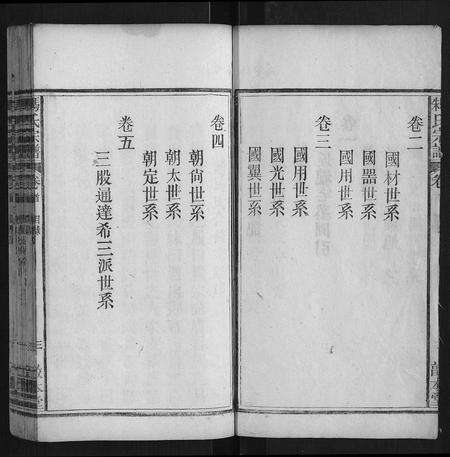 卷二
國材世系
國器世系
國用世系
卷三
國用世系
國光世系
國翼世系
卷四
朝尙世系
朝太世系
朝定世系
卷五
三股通達希三派世系
楊氏宗譜
卷首
三